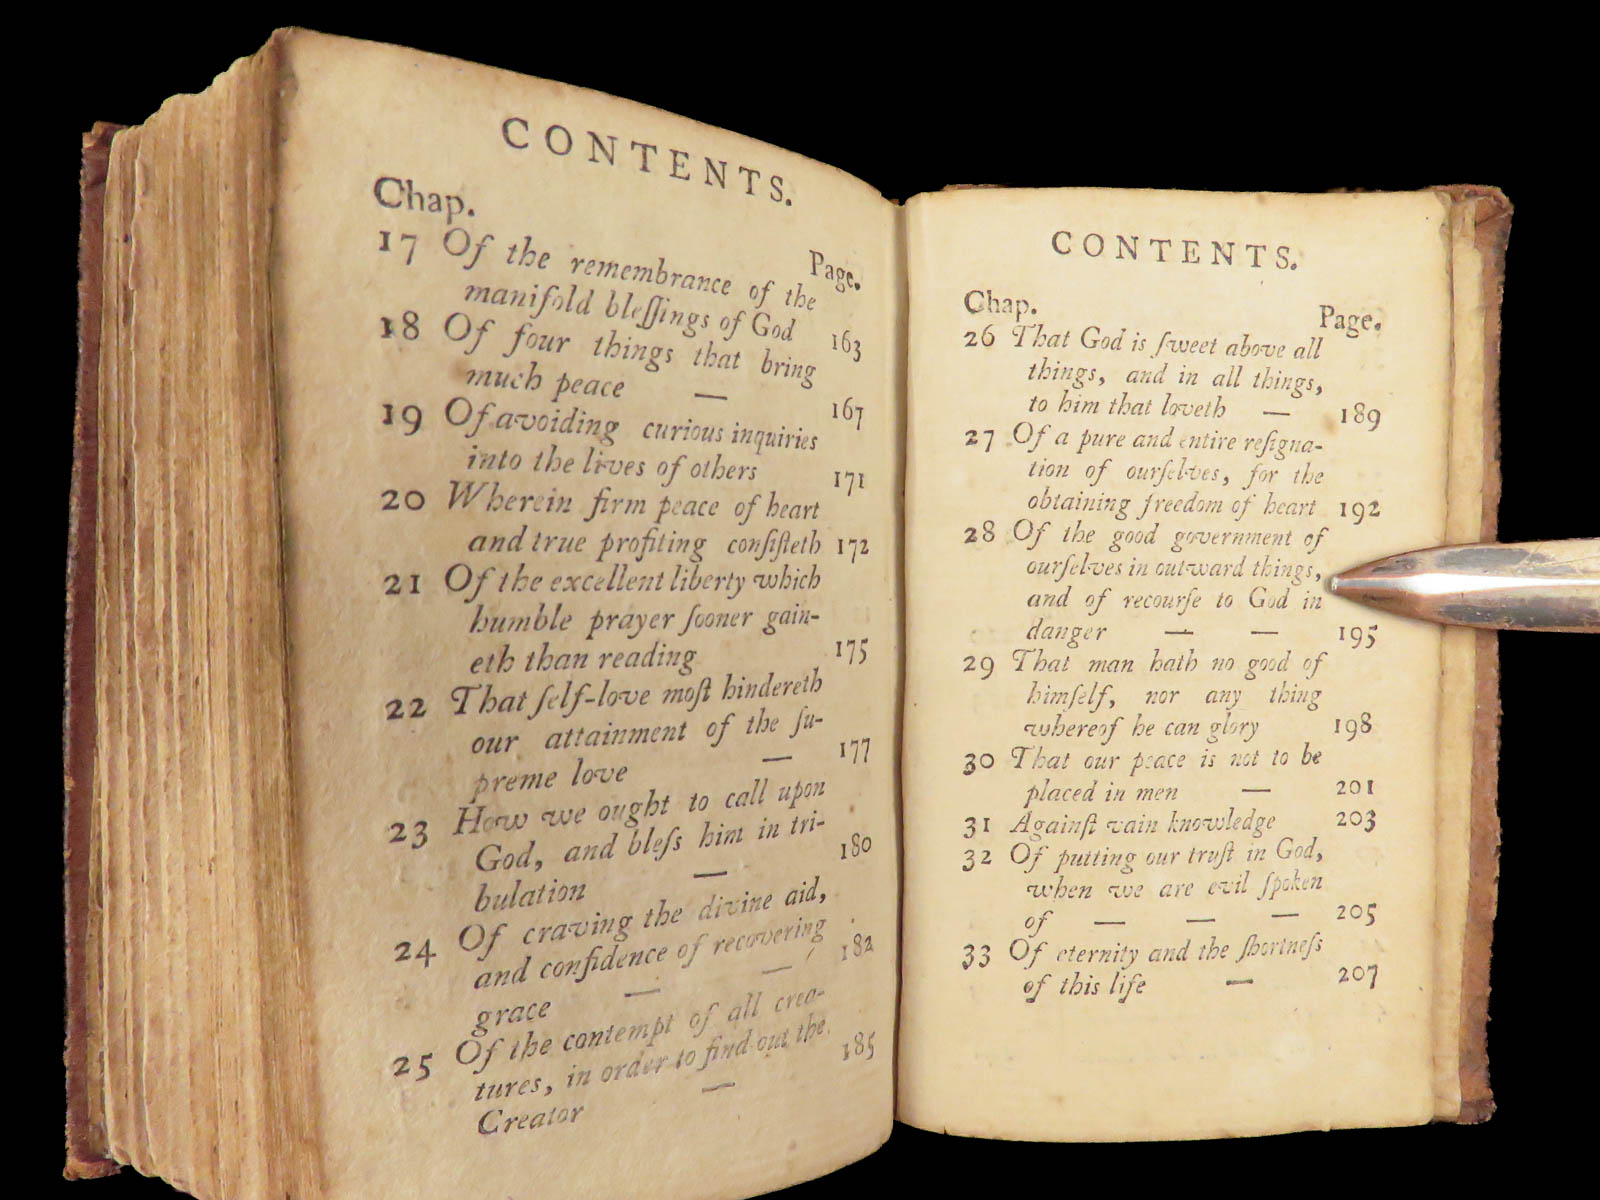 CONTENTS.
Chap.
Page.
17 Of the remembrance of the
manifold bleſſings of God 163
18 Of four things that bring
much peace — 167
19 Of avoiding curious inquiries
into the lives of others 171
20 Wherein firm peace of heart
and true profiting conſiſteth 172
21 Of the excellent liberty which
humble prayer ſooner gain-
eth than reading 175
22 That ſelf-love moſt hindereth
our attainment of the ſu-
preme love — 177
23 How we ought to call upon
God, and bleſs him in tri-
bulation — 180
24 Of craving the divine aid,
and confidence of recovering
grace — — 182
25 Of the contempt of all crea-
tures, in order to find out the
Creator — 185
CONTENTS.
Chap.
Page.
26 That God is ſweet above all
things, and in all things,
to him that loveth — 189
27 Of a pure and entire reſigna-
tion of ourſelves, for the
obtaining freedom of heart 192
28 Of the good government of
ourſelves in outward things,
and of recourſe to God in
danger — — 195
29 That man hath no good of
himſelf, nor any thing
whereof he can glory 198
30 That our peace is not to be
placed in men — 201
31 Againſt vain knowledge 203
32 Of putting our truſt in God,
when we are evil ſpoken
of — — — 205
33 Of eternity and the ſhortneſs
of this life — 207